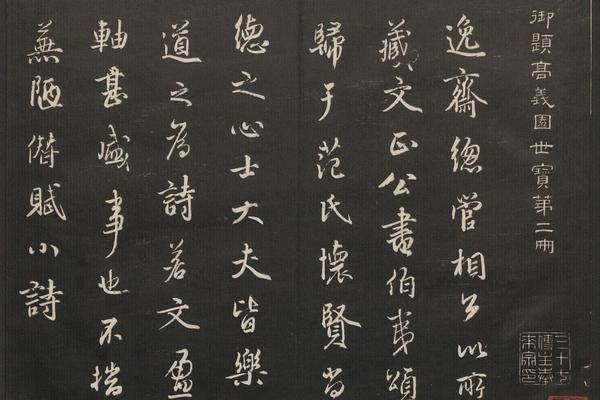 御題高義園世寶第二冊
逸齋總管相公以所
藏文正公書伯夷頌
歸于范氏懷賢尚
德之心士大夫皆樂
道之為詩若文盈
軸甚盛事也不揣
蕪陋僣賦小詩
三十七